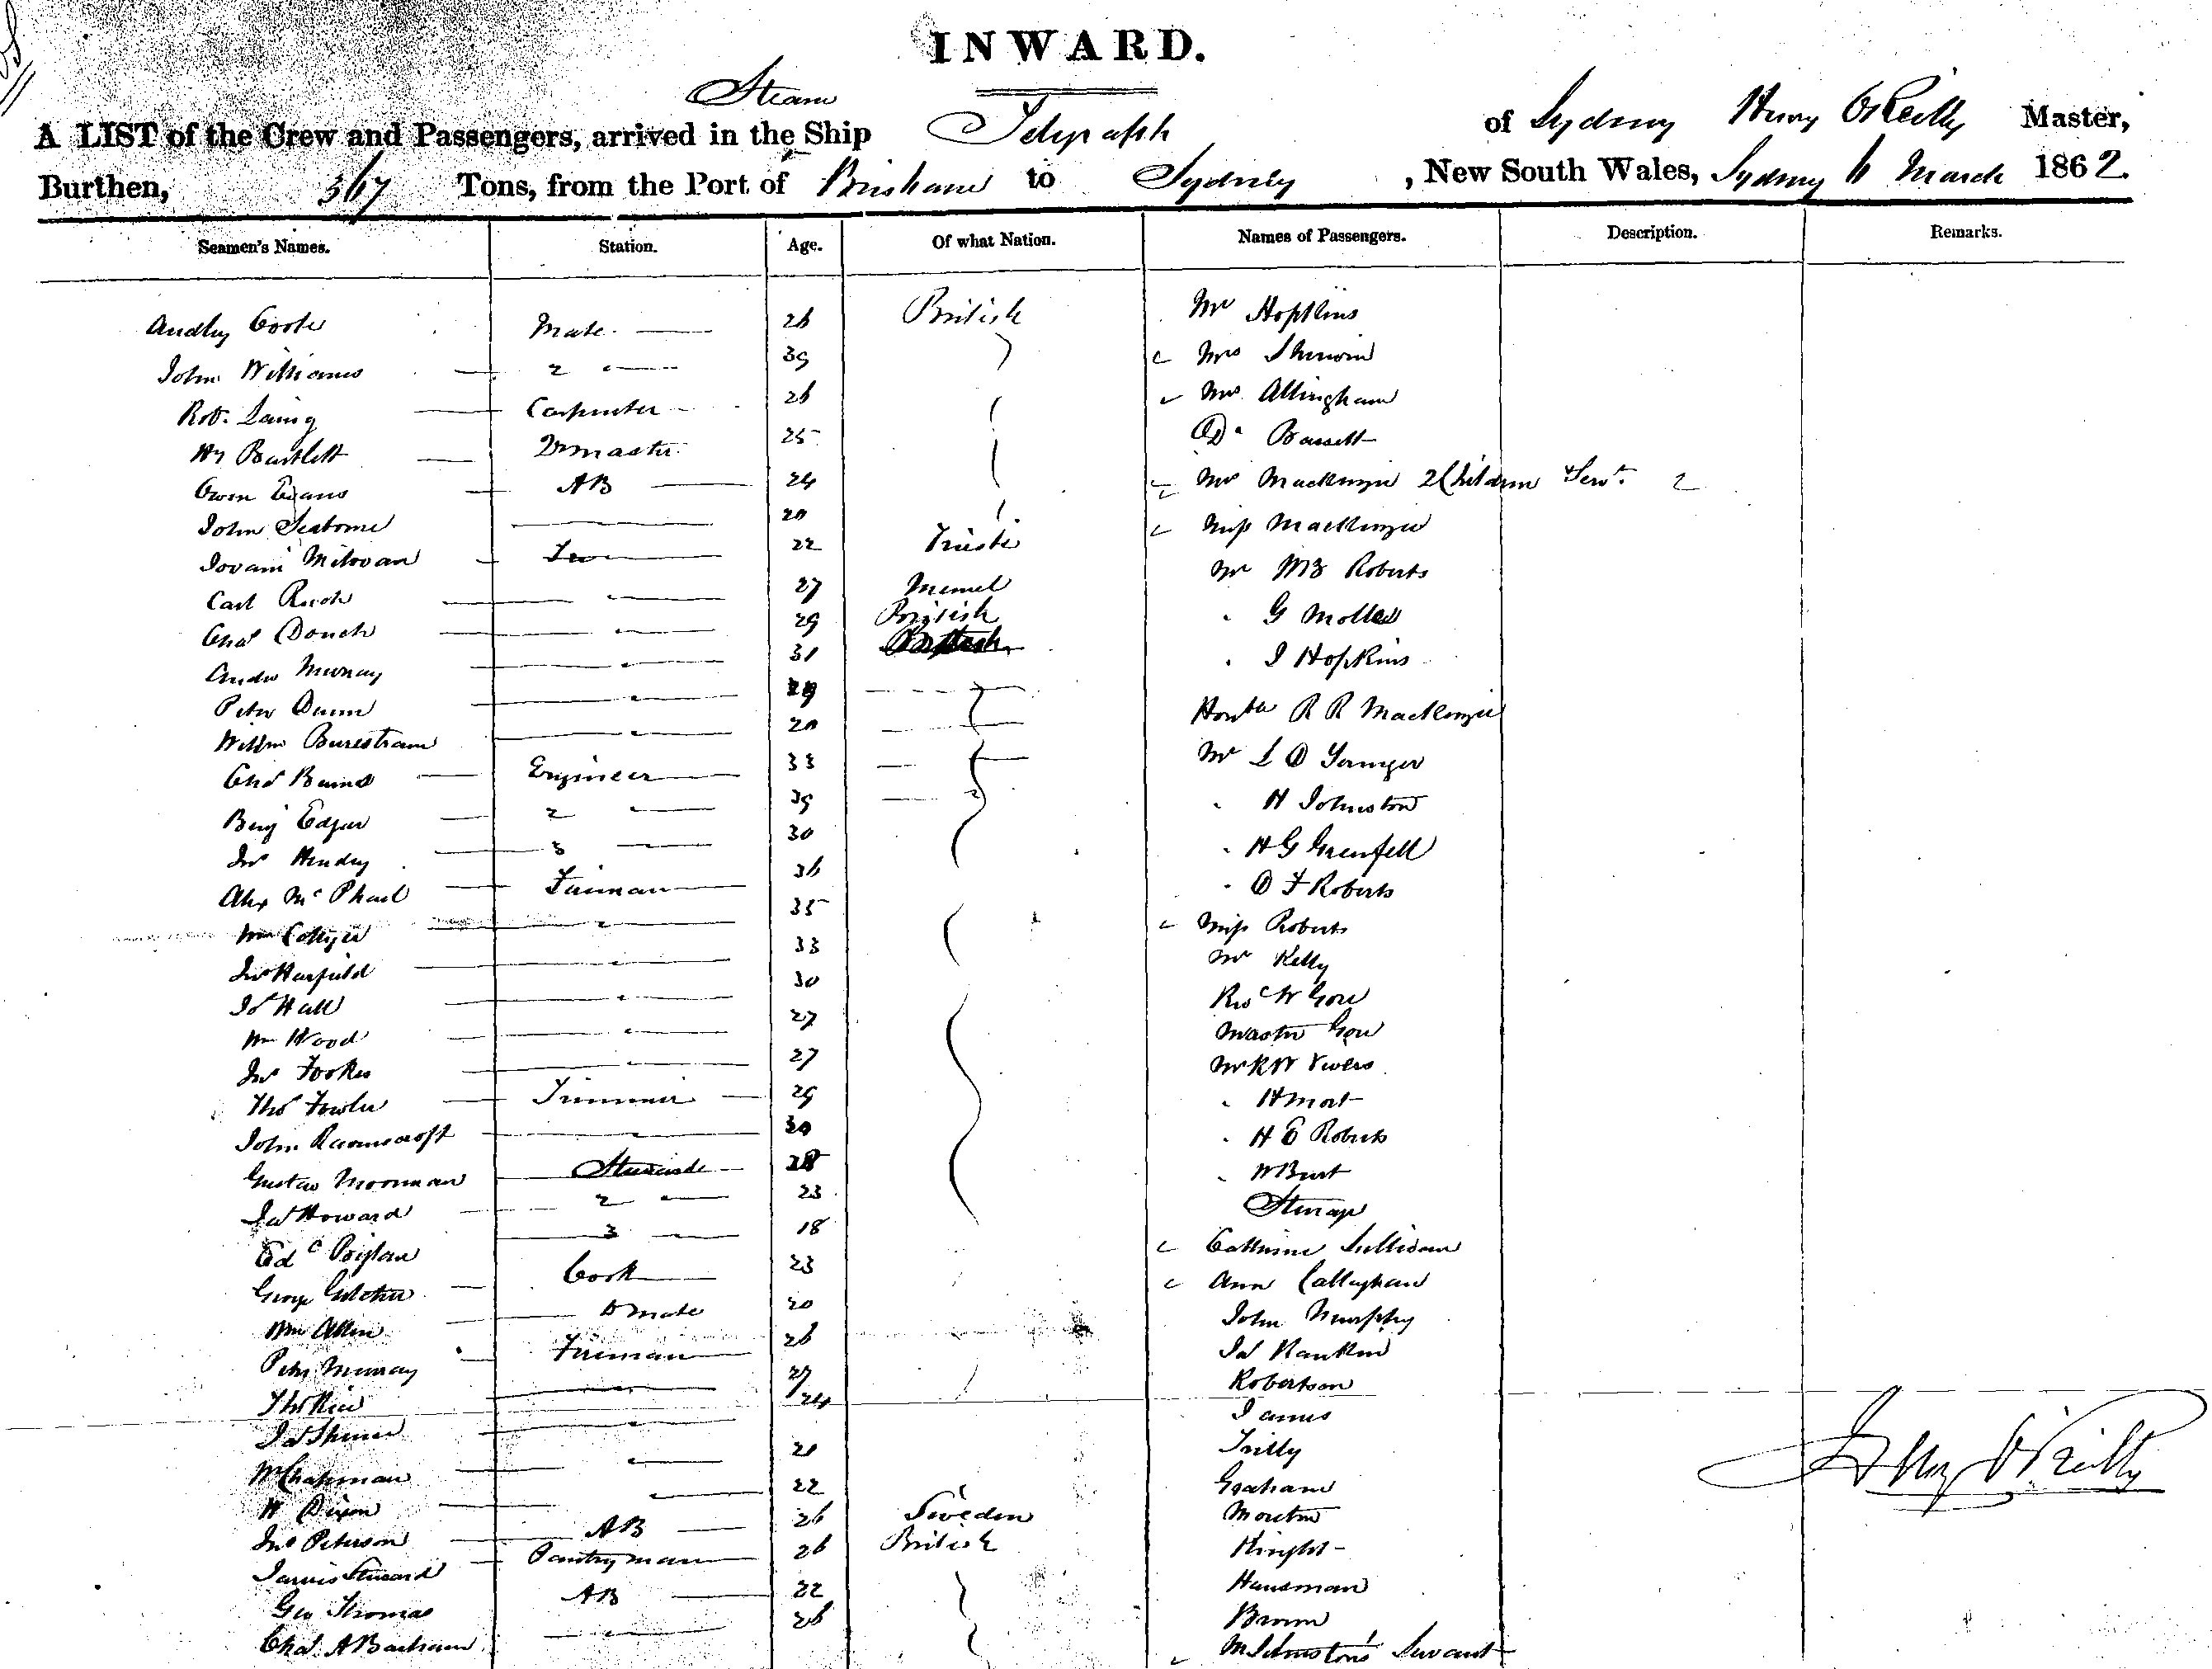 INWARD.
Steam
A LIST of the Crew and Passengers, arrived in the Ship Telegraph of Sydney Henry O'Reilly Master,
Burthen, 367 Tons, from the Port of Brisbane to Sydney , New South Wales, Sydney 6 March 1862.
Seamen's Names. Station. Age. Of what Nation. Names of Passengers. Description. Remarks.
Audley Coote Mate 26 British Mr Hopkins
John Williams 2 " 39 Mrs Sherwin
Robt. Laing Carpenter 26 Mrs Allingham
Hy Bartlett 25 Do. Bassett
Owen Evans AB 24 Mrs Mackenzie 2 Children & Servt. 2
John Seaborne 20 Miss Mackenzie
Iovani Milovan 22 Trieste Mr Roberts
Carl " 27 Memel " G
Chas " 29 British " I Hopkins
Andw Murray " 31 British
Peter Dunn " 29 Honble R R Mackenzie
Willm " 20 Mr L D Younger
Chas Bains Engineer 33 " H Johnston
Benj Edgar 2 " 39 " H G Grenfell
Jno Hendry 3 " 30 " D F Roberts
Alex McPhail Fireman 36 Miss Roberts
Wm Collyer " 35 Mr Kelly
Jno Harfield " 33 Revd W Gore
Js Hall " 30 Master Gore
Wm Wood " 27 Mr R W Vivers
Jno Fookes " 27 " H Mort
Thos Fowler Trimmer 29 " H E Roberts
John Ravenscroft " 30 " W Burt
Gustav Moorman Steward 28 Steerage
Jas Howard 2 " 23 Catherine Sullivan
Edd 3 " 18 Ann Callaghan
George Cook 23 John Murphy
Wm Allen Do mate 20 Jas Rankin
Peter Murray Fireman 26 Robertson
Thos Rice " 27 James
Jas " 24
W Chapman " 20 Graham
W Dixon " 22 Moreton
Jno Peterson AB 26 Sweden Knight
Jarvis Steward Pantryman 26 British Hausman
Geo Thomas AB 22 Brown
Chas A Barham " 26 M Johnston's Servant
Henry O'Reilly